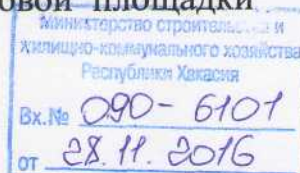 овой площадки
Министерство строительства и
жилищно-коммунального хозяйства
Республики Хакасия
Вх.№ 090-6101
от 28.11.2016